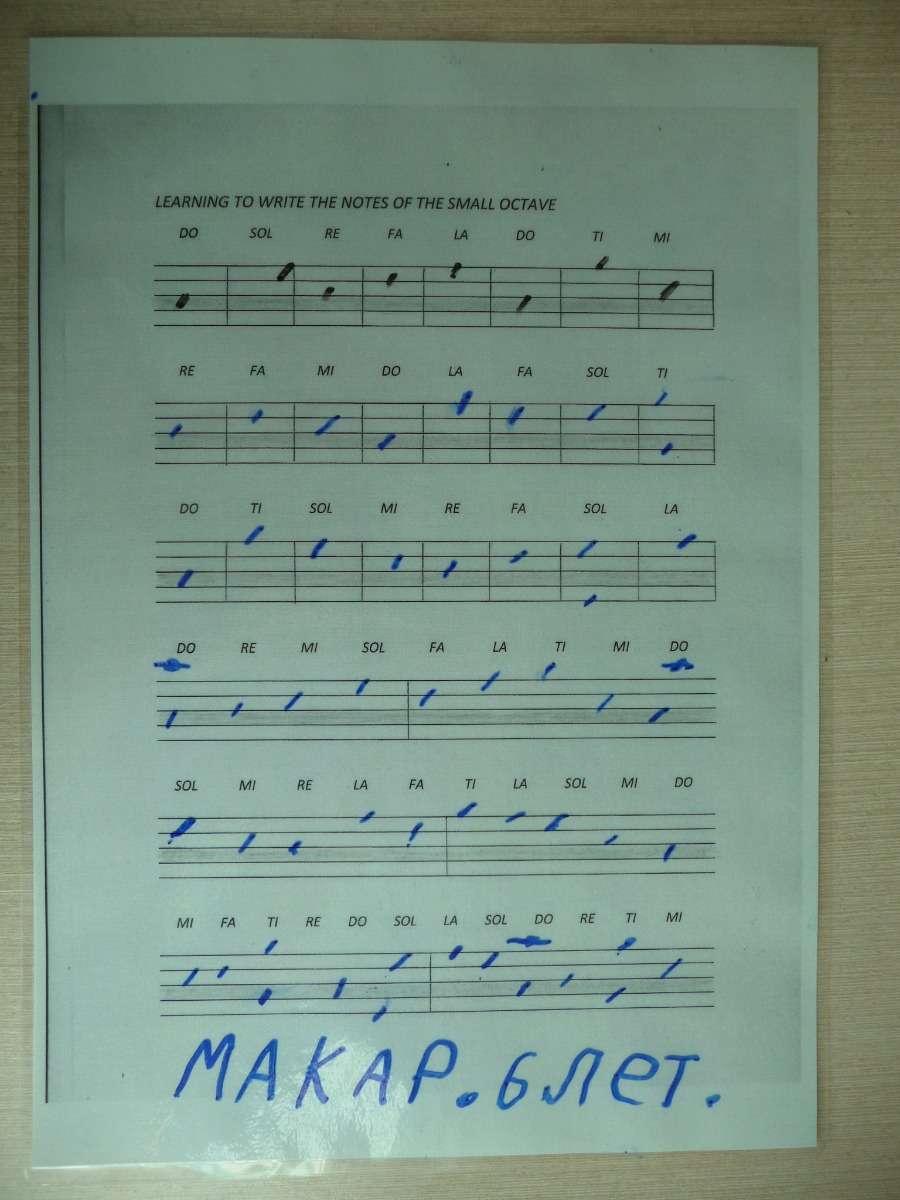 LEARNING TO WRITE THE NOTES OF THE SMALL OCTAVE
DO SOL RE FA LA DO TI MI
RE FA MI DO LA FA SOL TI
DO TI SOL MI RE FA SOL LA
DO RE MI SOL FA LA TI MI DO
SOL MI RE LA FA TI LA SOL MI DO
MI FA TI RE DO SOL LA SOL DO RE TI MI
МАКАР. 6 лет.